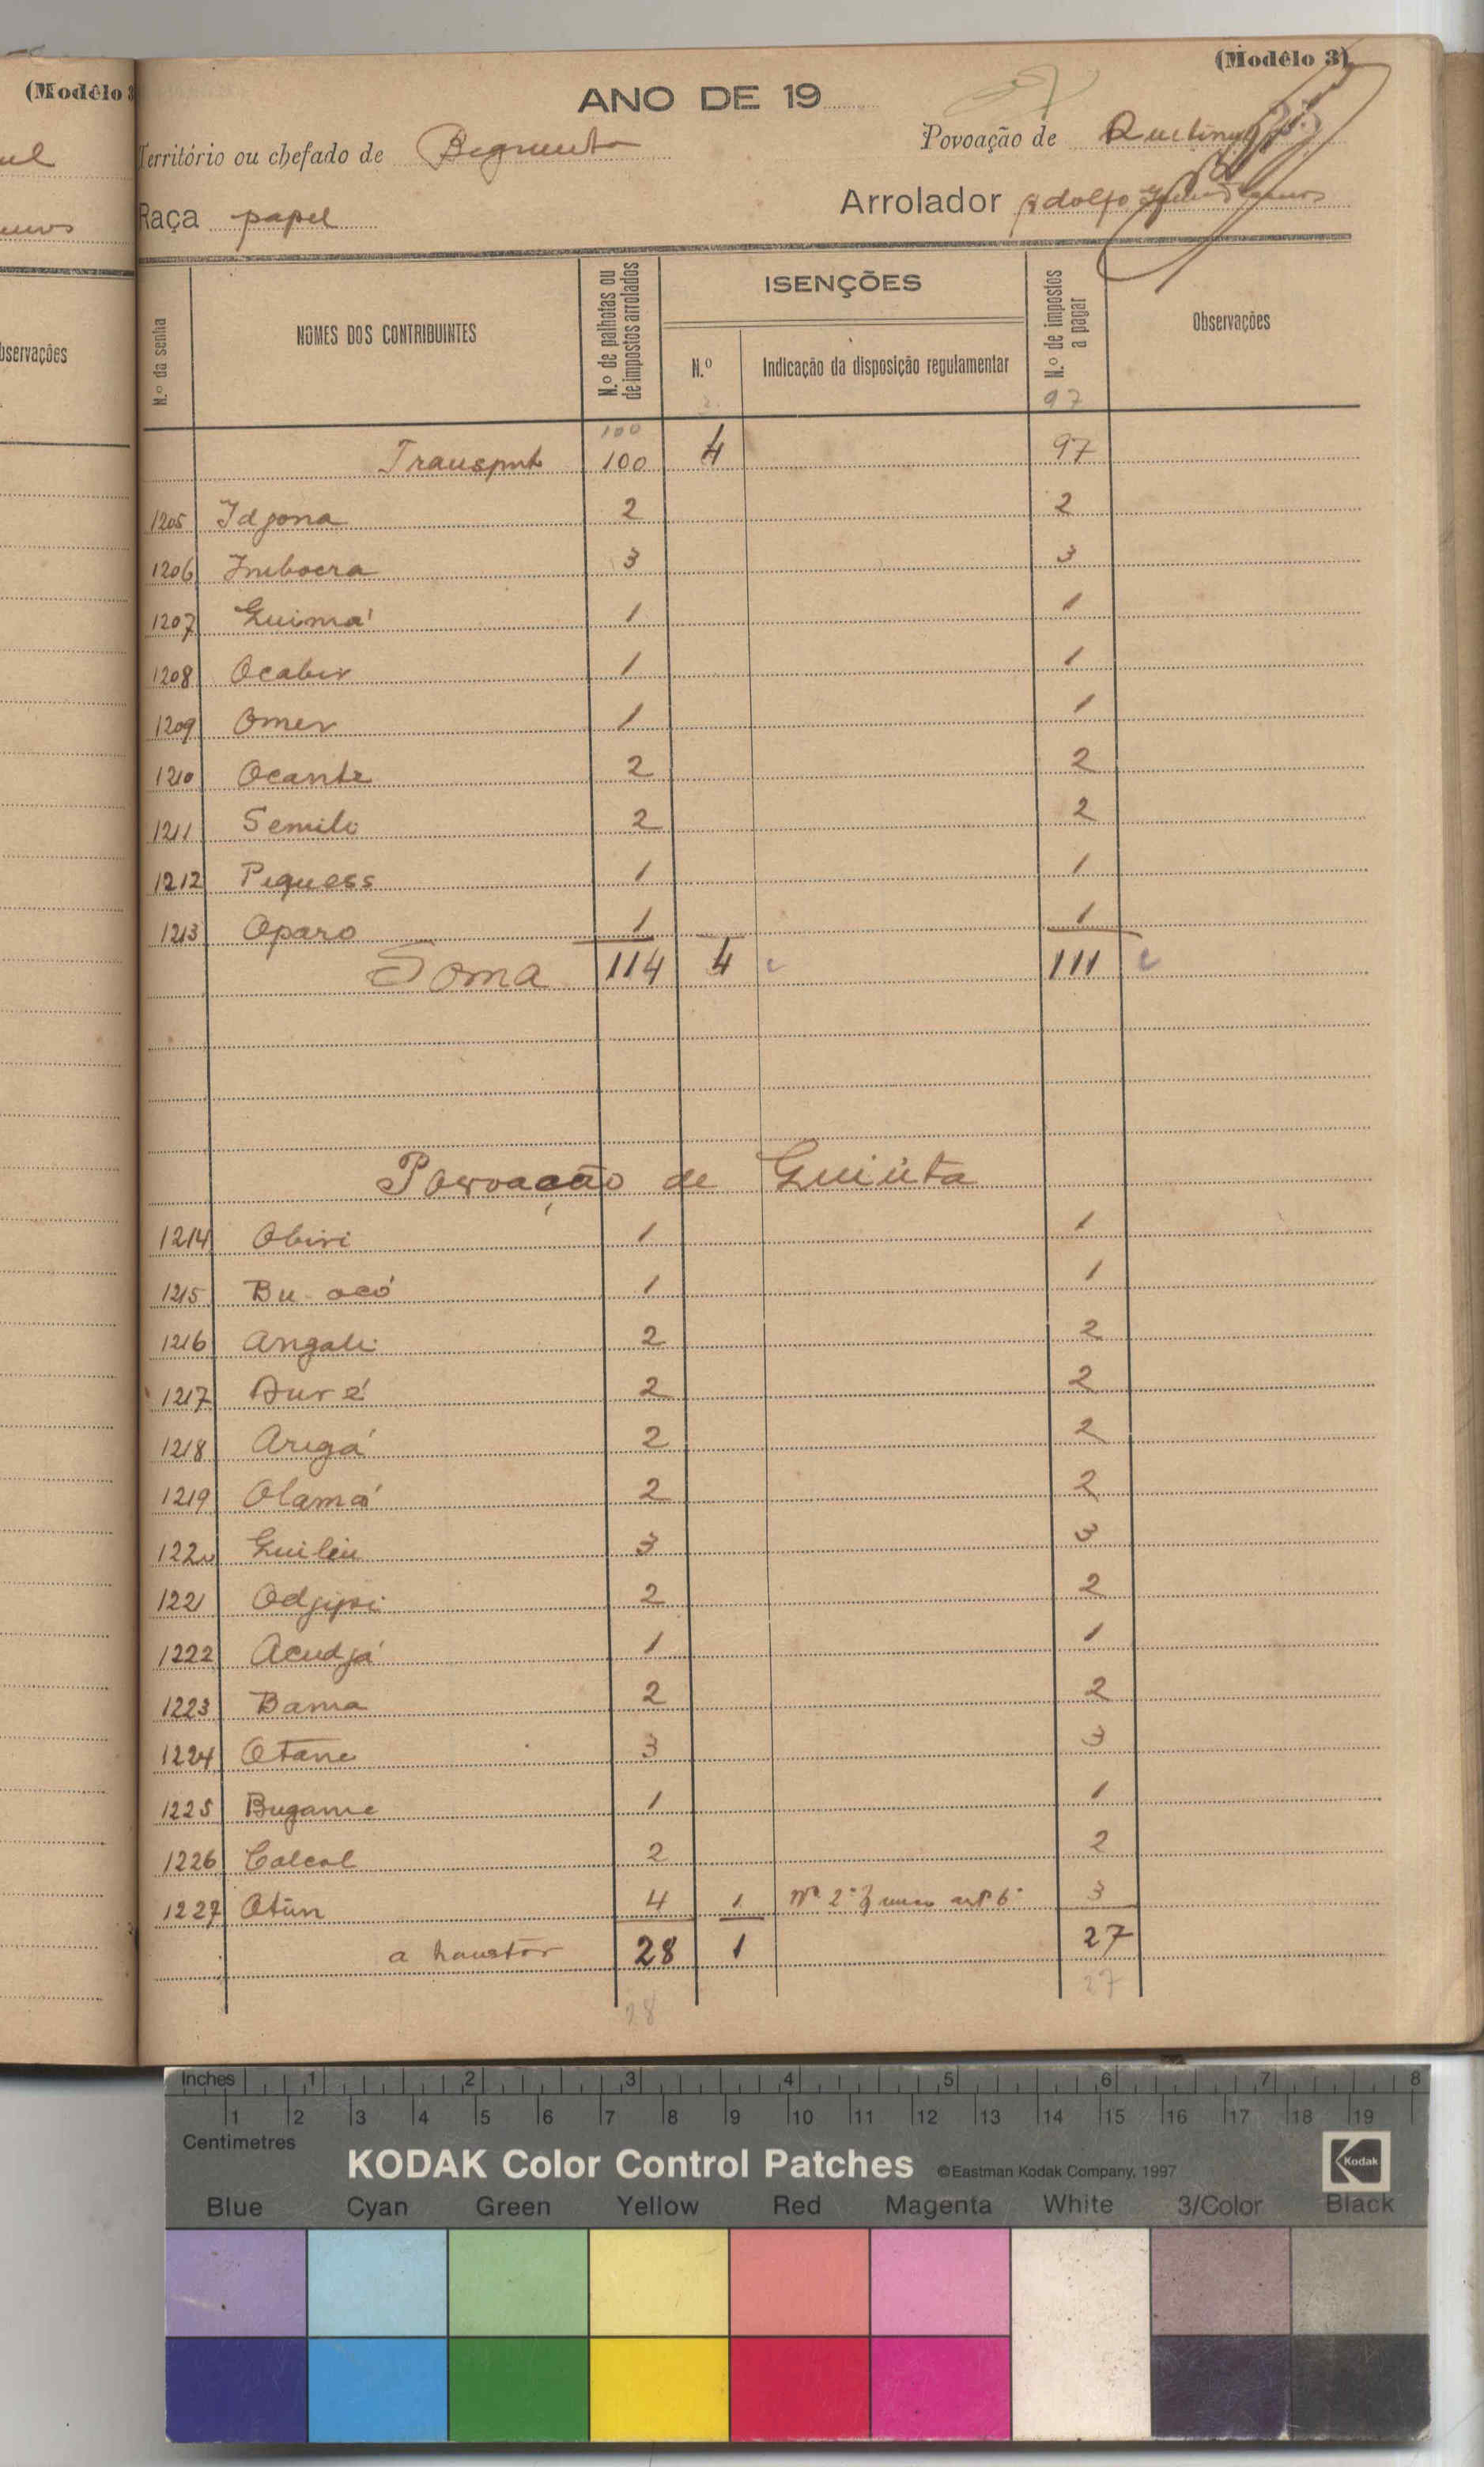 (Modêlo 3
(Modêlo 3)
ANO DE 19
Território ou chefado de
Povoação de
Raça papel
Arrolador Adolfo
bservações
N.º da senha
NOMES DOS CONTRIBUINTES
N.º de palhotas ou de impostos arrolados
ISENÇÕES
N.º
Indicação da disposição regulamentar
N.º de impostos a pagar
Observações
97
100
Transpnte 100 4 97
1205 Idjona 2 2
1206 Imbocra 3 3
1207 Guimá 1 1
1208 Ocabir 1 1
1209 Omer 1 1
1210 Ocante 2 2
1211 Semili 2 2
1212 Piquess 1 1
1213 Oparo 1 1
Soma 114 4 111
Povoação de Guiúta
1214 Obiri 1 1
1215 Bu-ocó 1 1
1216 Angali 2 2
1217 Duré 2 2
1218 Arigá 2 2
1219 Olamá 2 2
1220 Guileu 3 3
1221 Odjipsi 2 2
1222 Acudjá 1 1
1223 Bama 2 2
1224 Otane 3 3
1225 Bugame 1 1
1226 Calcol 2 2
1227 Otún 4 1 Nº 2º § unico artº 6º 3
a 28 1 27
28 27
Inches 1 2 3 4 5 6 7 8
1 2 3 4 5 6 7 8 9 10 11 12 13 14 15 16 17 18 19
Centimetres
KODAK Color Control Patches ©Eastman Kodak Company, 1997 Kodak
Blue Cyan Green Yellow Red Magenta White 3/Color Black